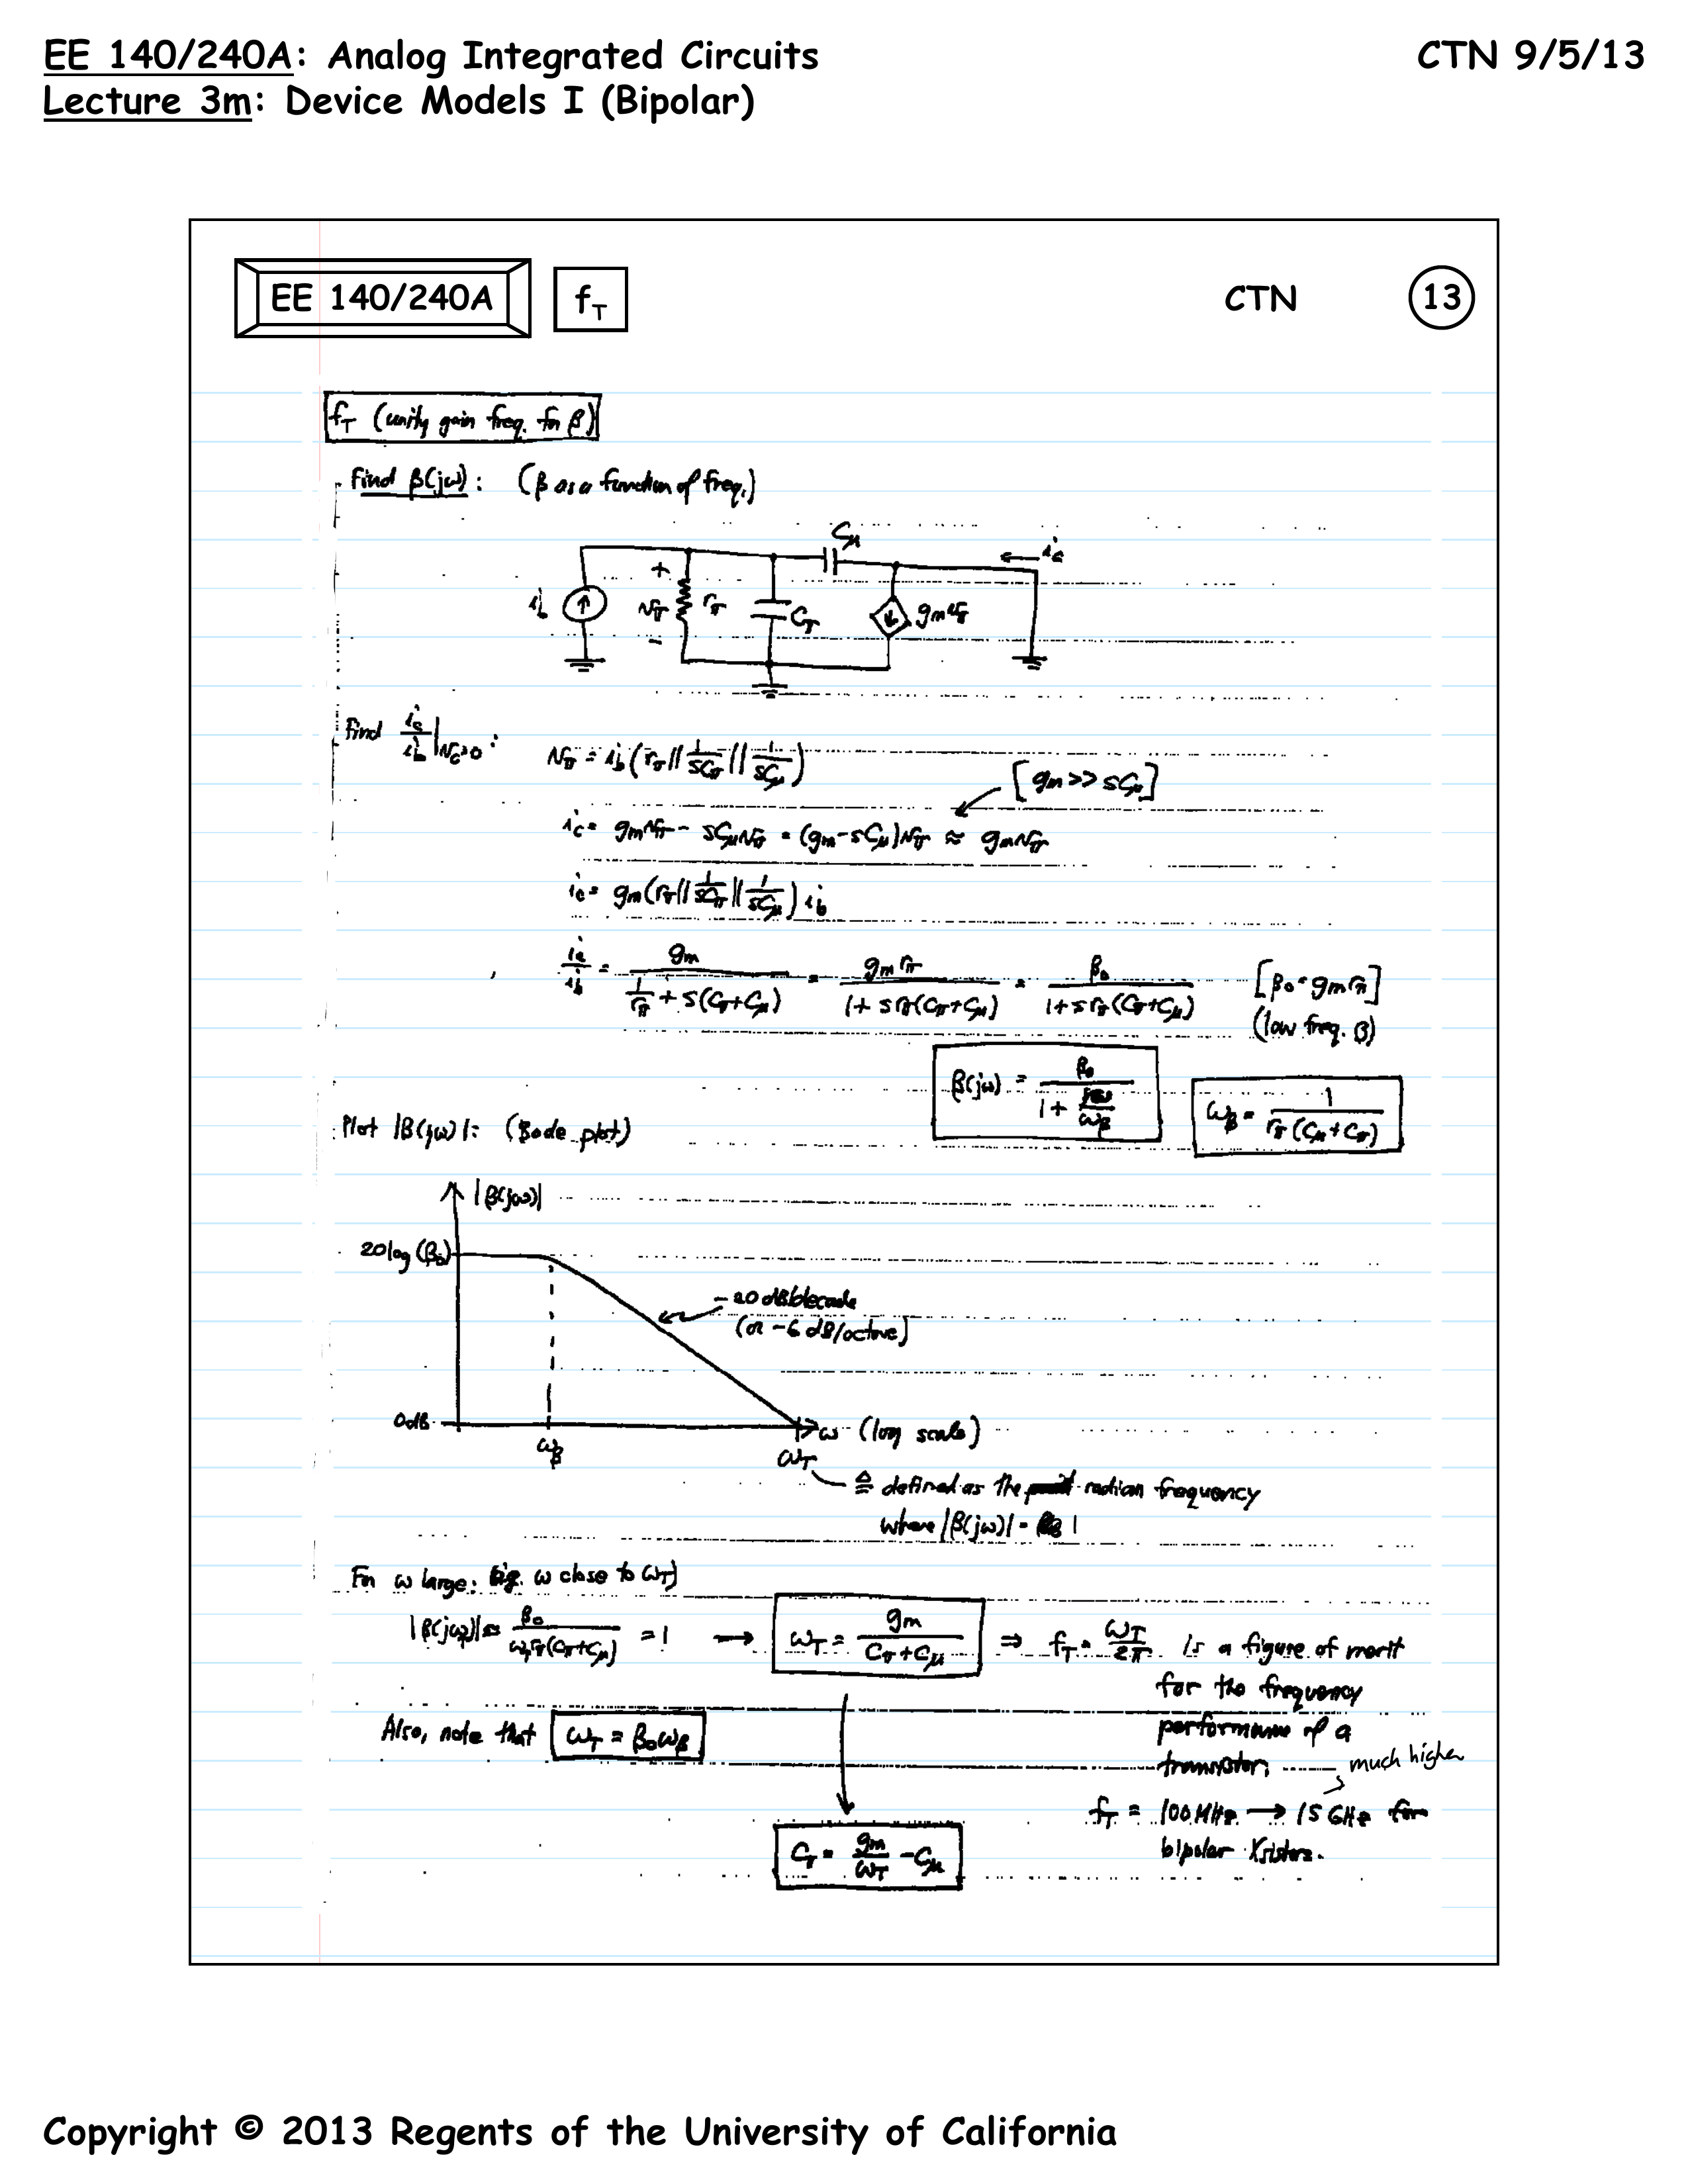 EE 140/240A: Analog Integrated Circuits CTN 9/5/13
Lecture 3m: Device Models I (Bipolar)
EE 140/240A f_T CTN 13
f_T (unity gain freq. for β)
Find β(jω): (β as a function of freq.)
C_μ
i_c
i_b + v_π - r_π C_π g_m v_π
Find i_c/i_b |v_c=0 : v_π = i_b (r_π || 1/sC_π || 1/sC_μ)
[g_m >> sC_μ]
i_c = g_m v_π - sC_μ v_π = (g_m - sC_μ) v_π ≈ g_m v_π
i_c = g_m (r_π || 1/sC_π || 1/sC_μ) i_b
i_c/i_b = g_m / (1/r_π + s(C_π + C_μ)) = g_m r_π / (1 + s r_π (C_π + C_μ)) = β_0 / (1 + s r_π (C_π + C_μ)) [β_0 = g_m r_π]
(low freq. β)
β(jω) = β_0 / (1 + jω/ω_β) ω_β = 1 / (r_π (C_μ + C_π))
Plot |β(jω)|: (Bode plot)
|β(jω)|
20log(β_0)
-20 dB/decade
(or -6 dB/octave)
0dB ω (log scale)
ω_β ω_T
≜ defined as the radian frequency
where |β(jω)| = 1
For ω large: (e.g. ω close to ω_T)
|β(jω_T)| ≈ β_0 / (ω_T r_π (C_π + C_μ)) = 1 → ω_T = g_m / (C_π + C_μ) ⇒ f_T = ω_T/2π is a figure of merit
for the frequency
performance of a
transistor.
Also, note that ω_T = β_0 ω_β
much higher
f_T = 100MHz → 15 GHz for
bipolar Xsistors.
C_π = g_m/ω_T - C_μ
Copyright © 2013 Regents of the University of California